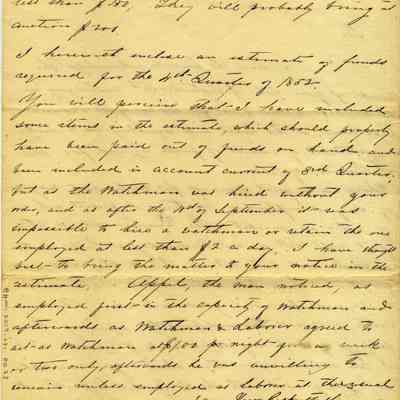 less than $80, They will probably bring at
auction $200
I herewith enclose an estimate of funds
required for the 4th Quarter of 1852.
You will perceive that I have included
some items in the estimate, which should properly
have been paid out of funds on hand and
been included in account current of 3rd Quarter,
but as the Watchman was hired without your
order, and as after the of September it was
impossible to hire a watchman or retain the one
employed at less than $2 a day, I have thought
best to bring the matter to your notice in the
estimate. Appel, the man noticed, as
employed first in the capacity of Watchman and
afterwards as Watchman & Laborer agreed to
act as Watchman at $1.00 pr night for a week
or two only, afterwards he was unwilling to
remain unless employed as laborer at the usual